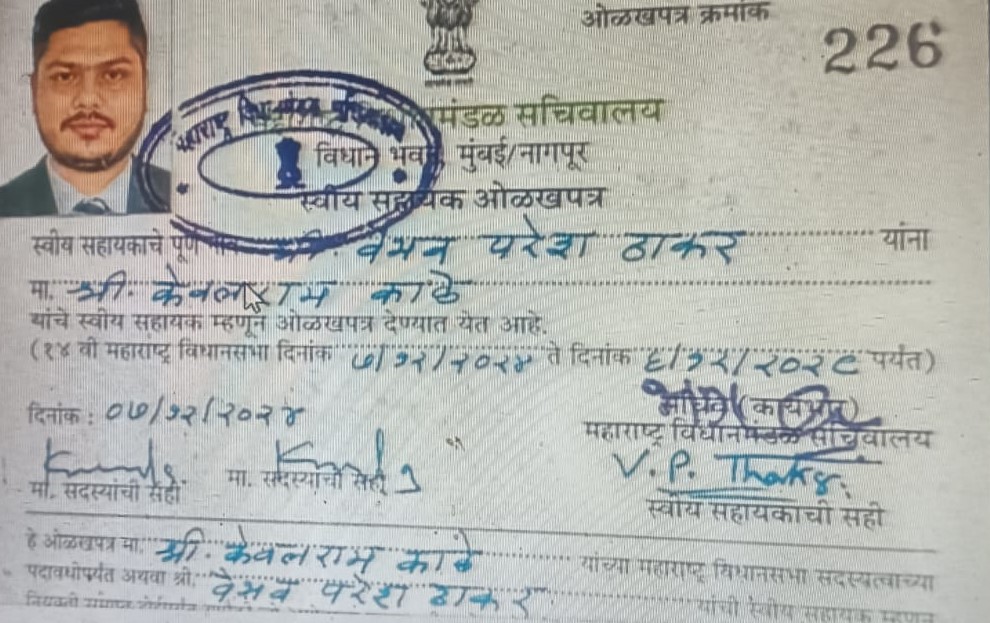 ओळखपत्र क्रमांक
226
विधानमंडळ सचिवालय
विधान भवन, मुंबई/नागपूर
स्वीय सहायक ओळखपत्र
स्वीय सहायकाचे पूर्ण नाव श्री. वैभव परेश ठाकर यांना
मा. श्री. केवलराम काळे
यांचे स्वीय सहायक म्हणून ओळखपत्र देण्यात येत आहे.
(१४ वी महाराष्ट्र विधानसभा दिनांक ७/१२/२०२४ ते दिनांक ६/१२/२०२९ पर्यंत)
दिनांक : ०७/१२/२०२४
महाराष्ट्र विधानमंडळ सचिवालय
V. P. Thakar.
मा. सदस्यांची सही मा. सदस्यांची सही
स्वीय सहायकाची सही
हे ओळखपत्र मा. श्री. केवलराम काळे यांच्या महाराष्ट्र विधानसभा सदस्यत्वाच्या
पदावधीपर्यंत अथवा श्री. वैभव परेश ठाकर यांची स्वीय सहायक म्हणून